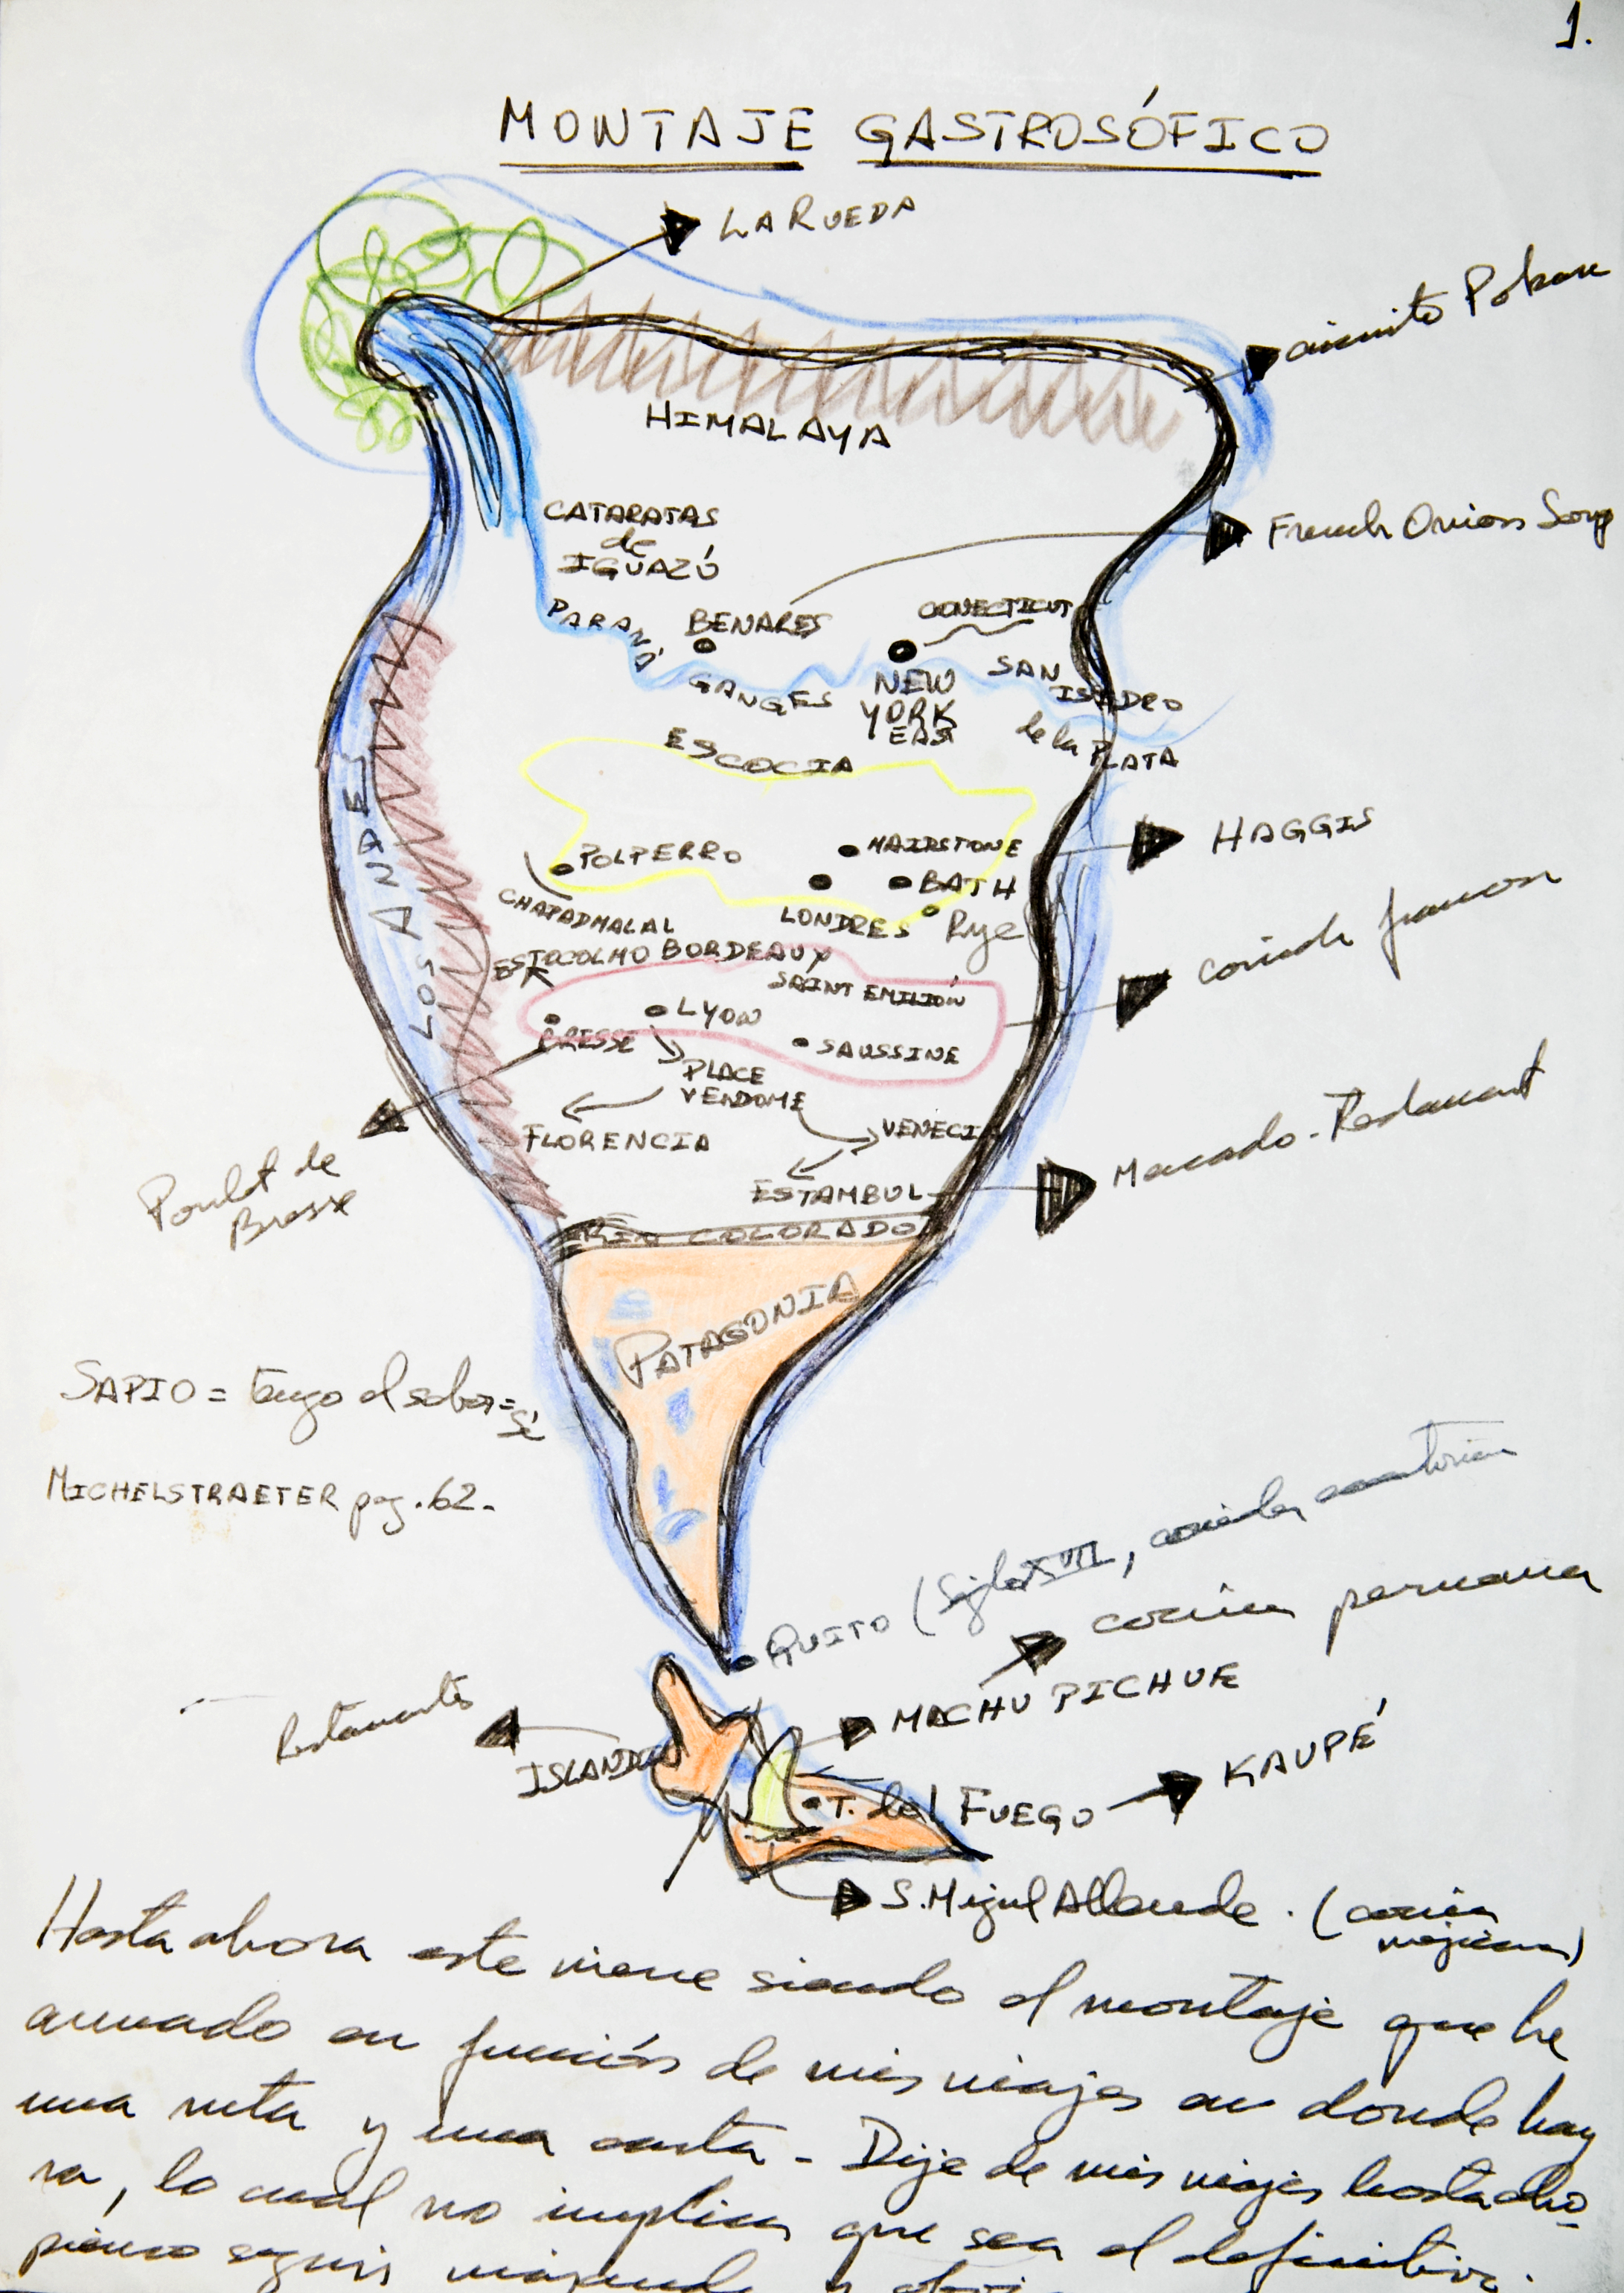 1.
MONTAJE GASTROSÓFICO
LA RUEDA
circuito
HIMALAYA
CATARATAS
de
IGUAZÚ
French Onion Soup
PARANÁ
BENARES
CONECTICUT
GANGES
NEW
YORK
EAST
SAN
ISIDRO
de la PLATA
ESCOCIA
HAGGIS
POLPERRO
MAIDSTONE
BATH
CHAPADMALAL
LONDRES
Rye
LOS ANDES
ESTOCOLMO BORDEAUX
SAINT EMILIÓN
comida francesa
LYON
BRESSE
SAUSSINE
PLACE
VENDOME
FLORENCIA
VENECIA
Mercado-Restaurant
ESTAMBUL
Poulet de
Bresse
RÍO COLORADO
PATAGONIA
SAPIO = tengo el sabor =
sé
MICHELSTRAETER pag. 62-
QUITO (Siglo XVII, comida ecuatoriana
cocina peruana
MACHU PICHUE
ISLANDIA
KAUPÉ
T. del FUEGO
S. Miguel Allende. (cocina
mejicana)
Hasta ahora este viene siendo el montaje que he
armado en función de mis viajes en donde hay
una ruta y una carta - Dije de mis viajes hasta aho-
ra, lo cual no implica que sea el definitivo.
pienso seguir viajando y